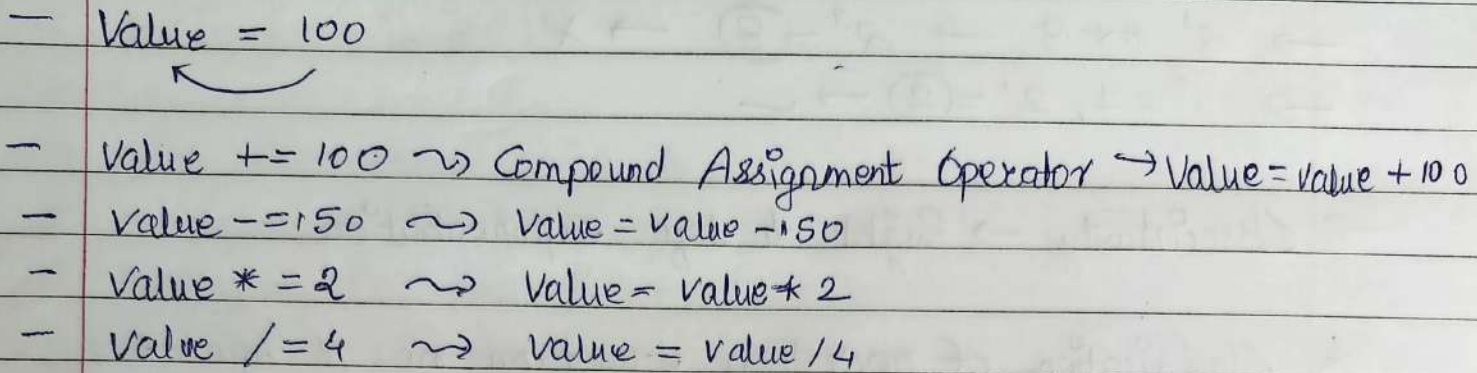 - Value = 100
- Value += 100 ~> Compound Assignment Operator → Value = value + 100
- Value -= 150 ~> Value = Value - 150
- Value *= 2 ~> Value = value * 2
- Value /= 4 ~> value = value / 4